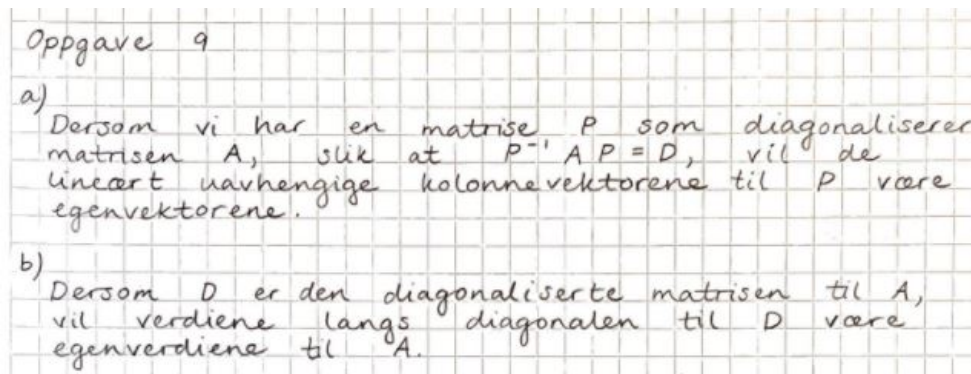 Oppgave 9
a)
Dersom vi har en matrise P som diagonaliserer
matrisen A, slik at P⁻¹ A P = D, vil de
lineært uavhengige kolonnevektorene til P være
egenvektorene.
b)
Dersom D er den diagonaliserte matrisen til A,
vil verdiene langs diagonalen til D være
egenverdiene til A.